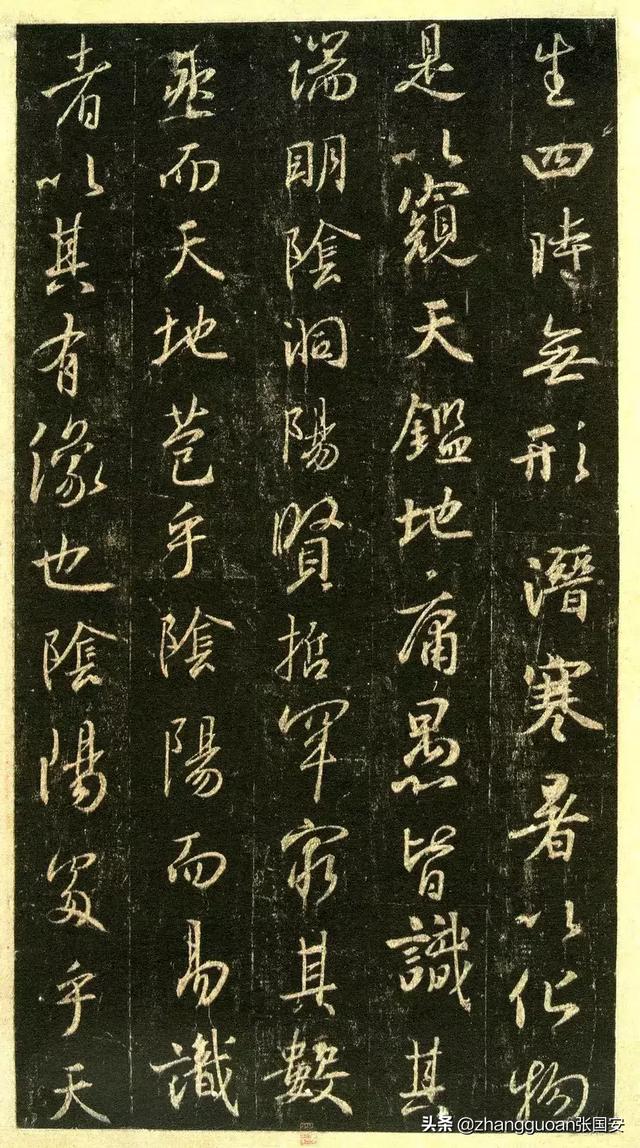 生四時無形潛寒暑以化物
是以窺天鑑地庸愚皆識其
端明陰洞陽賢哲罕窮其數
然而天地苞乎陰陽而易識
者以其有像也陰陽處乎天
头条 @zhangguoan张国安